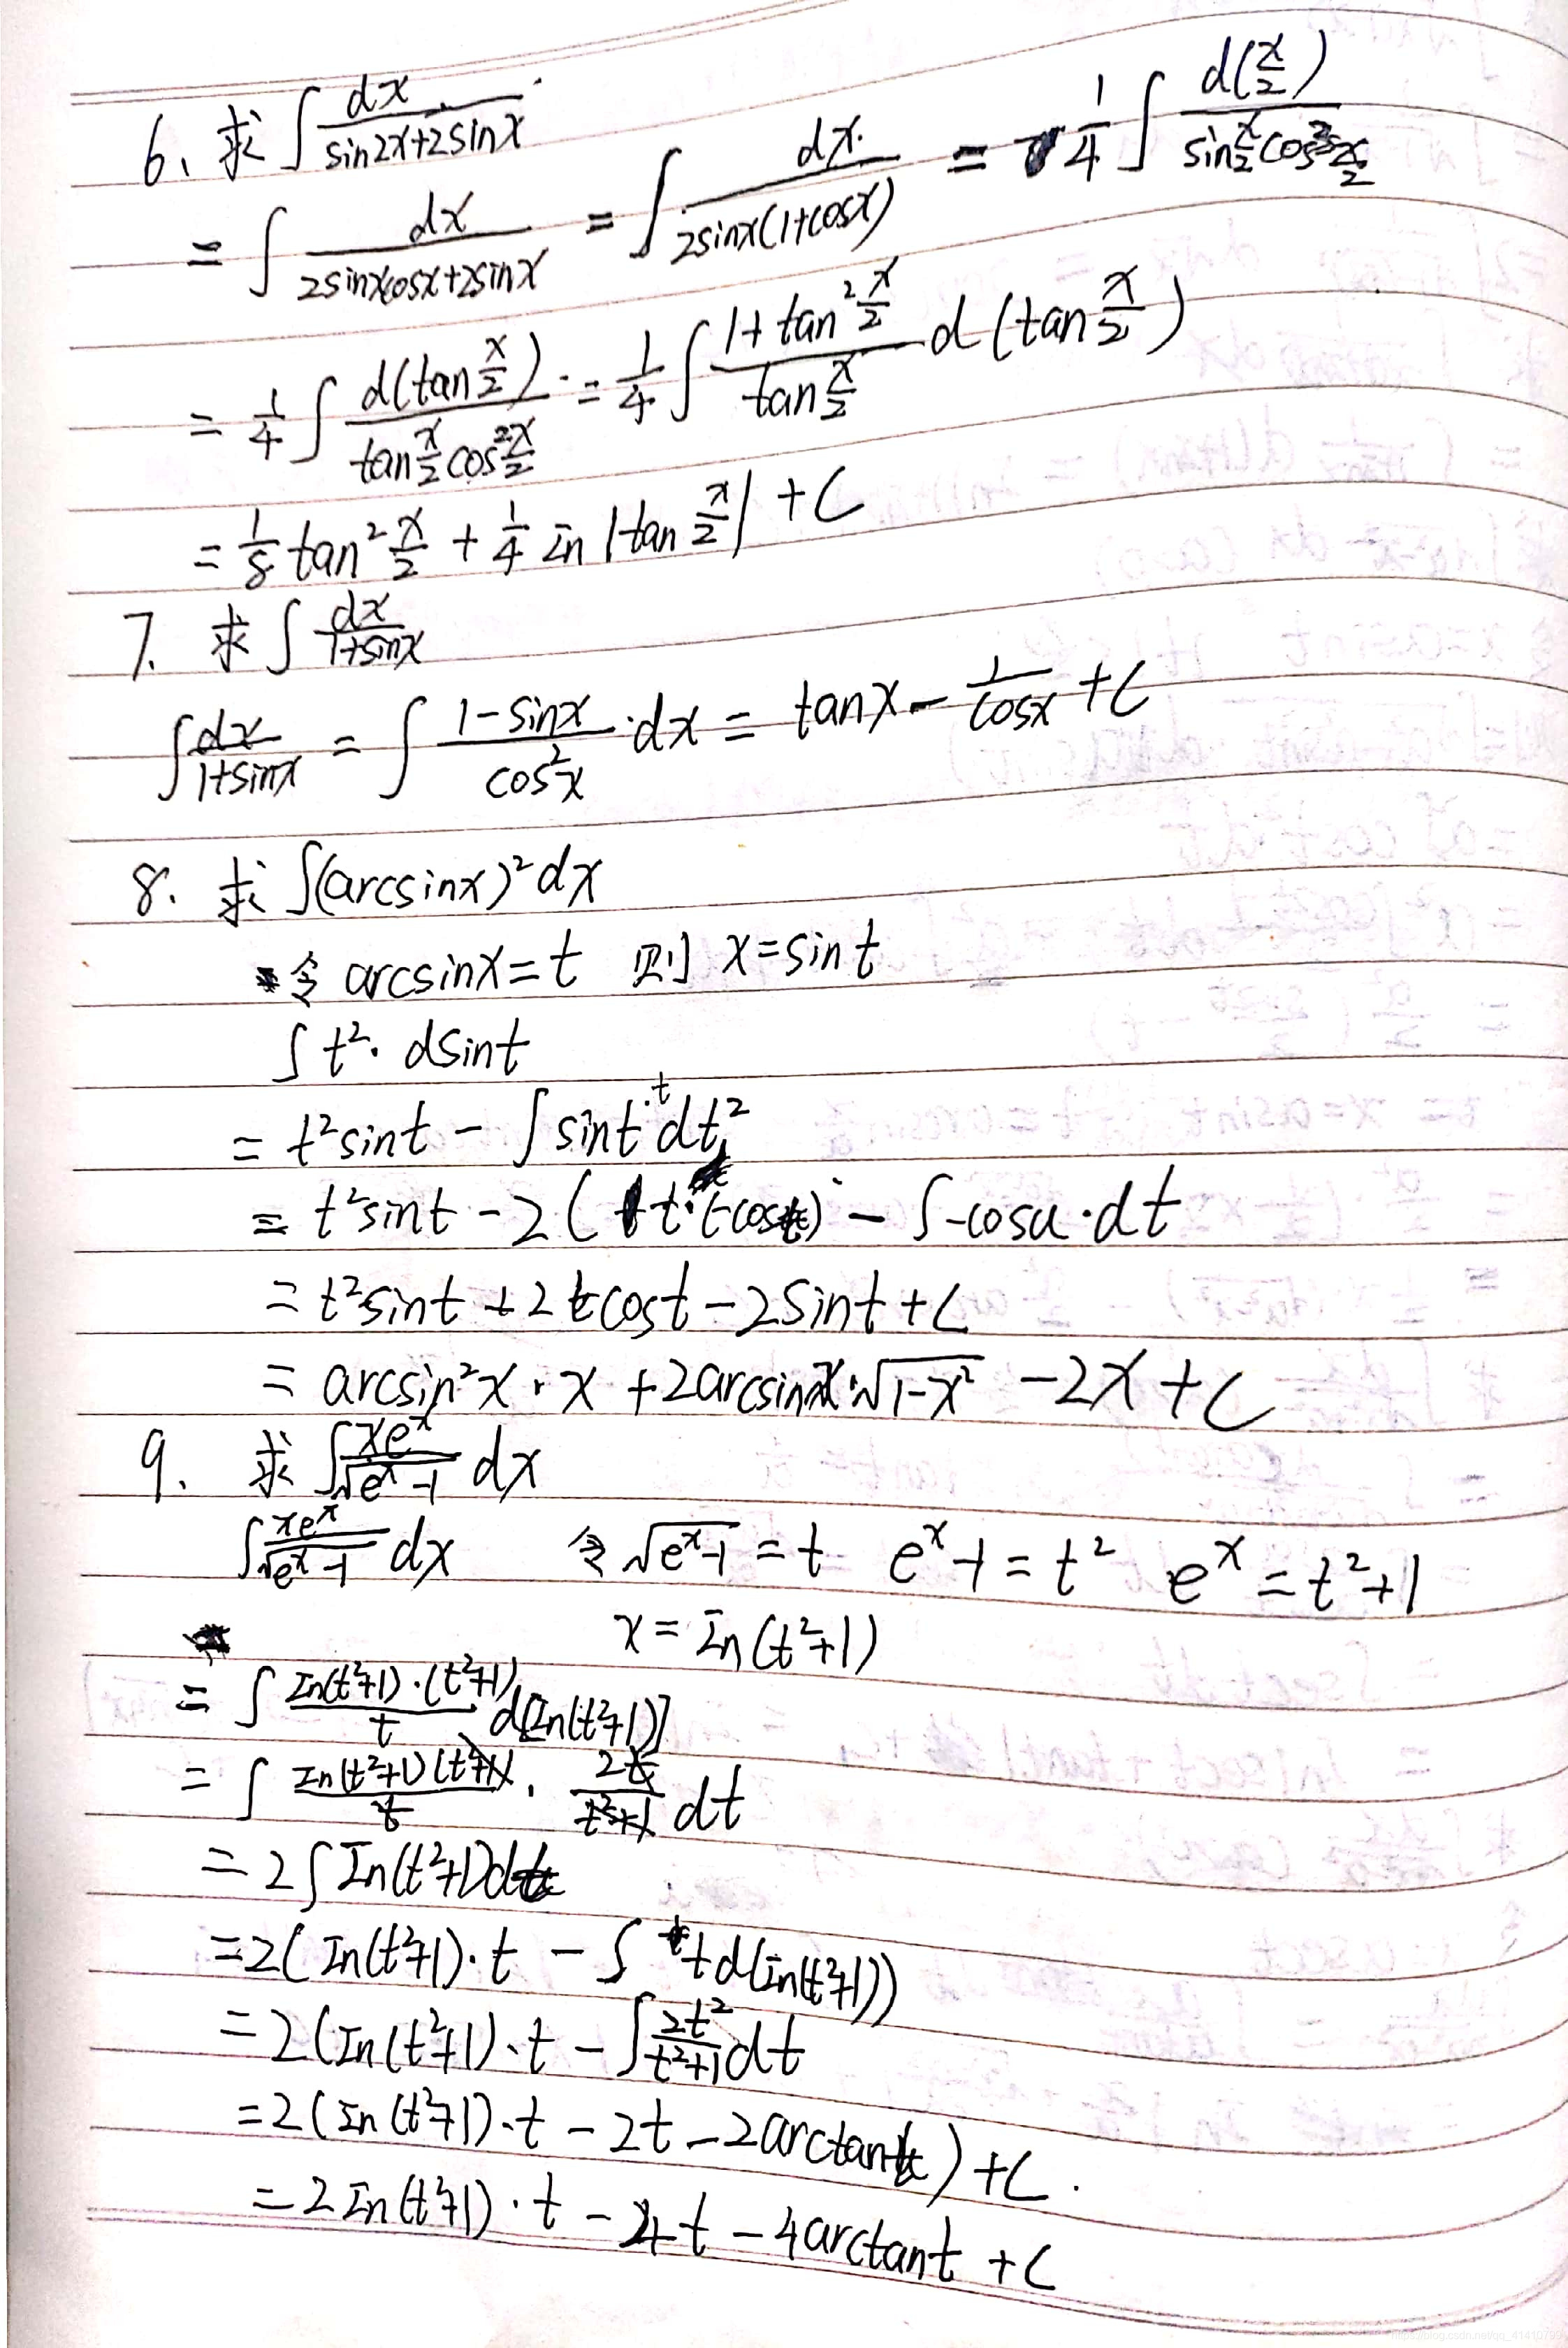 6、求∫dx/(sin2x+2sinx)
=∫dx/(2sinxcosx+2sinx) =∫dx/(2sinx(1+cosx)) = 1/4∫d(x/2)/(sin x/2 cos³ x/2)
=1/4∫d(tan x/2)/(tan x/2 cos² x/2) = 1/4∫(1+tan² x/2)/(tan x/2) d(tan x/2)
=1/8 tan² x/2 + 1/4 In|tan x/2| +C
7. 求∫dx/(1+sinx)
∫dx/(1+sinx) = ∫(1-sinx)/(cos²x)·dx = tanx - 1/cosx +C
8. 求∫(arcsinx)²dx
令 arcsinx=t 则 x=sint
∫t²·dsint
= t²sint - ∫sint dt²
= t²sint - 2(t·(-cost) - ∫-cosu·dt
= t²sint + 2tcost - 2sint + C
= arcsin²x·x + 2arcsinx·√(1-x²) - 2x + C
9. 求∫xe^x/√(e^x-1) dx
∫xe^x/√(e^x-1) dx 令√(e^x-1) = t e^x-1=t² e^x=t²+1
x=In(t²+1)
=∫In(t²+1)·(t²+1)/t d[In(t²+1)]
=∫In(t²+1)(t²+1)/t · 2t/(t²+1) dt
=2∫In(t²+1)dt
=2(In(t²+1)·t - ∫td(In(t²+1))
=2(In(t²+1)·t - ∫2t²/(t²+1)dt
=2(In(t²+1)·t - 2t - 2arctant)+C.
=2In(t²+1)·t - 4t - 4arctant +C